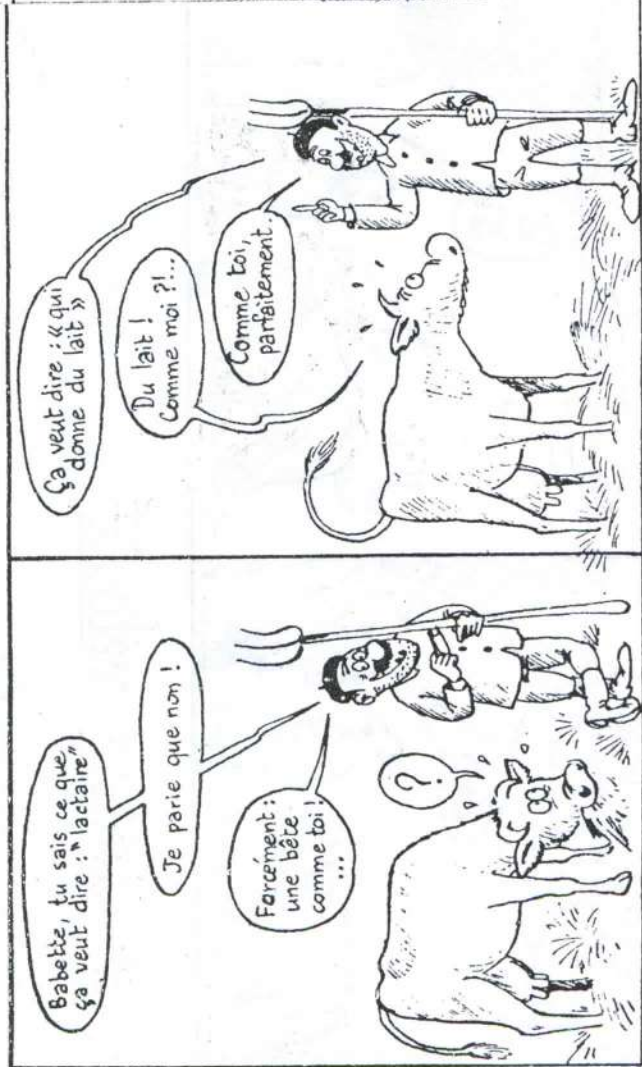 Babette, tu sais ce que
ça veut dire : "lactaire"
Je parie que non !
Forcément :
une bête
comme toi !
...
?
Ça veut dire : « qui
donne du lait »
Du lait !
Comme moi ?!...
Comme toi,
parfaitement.